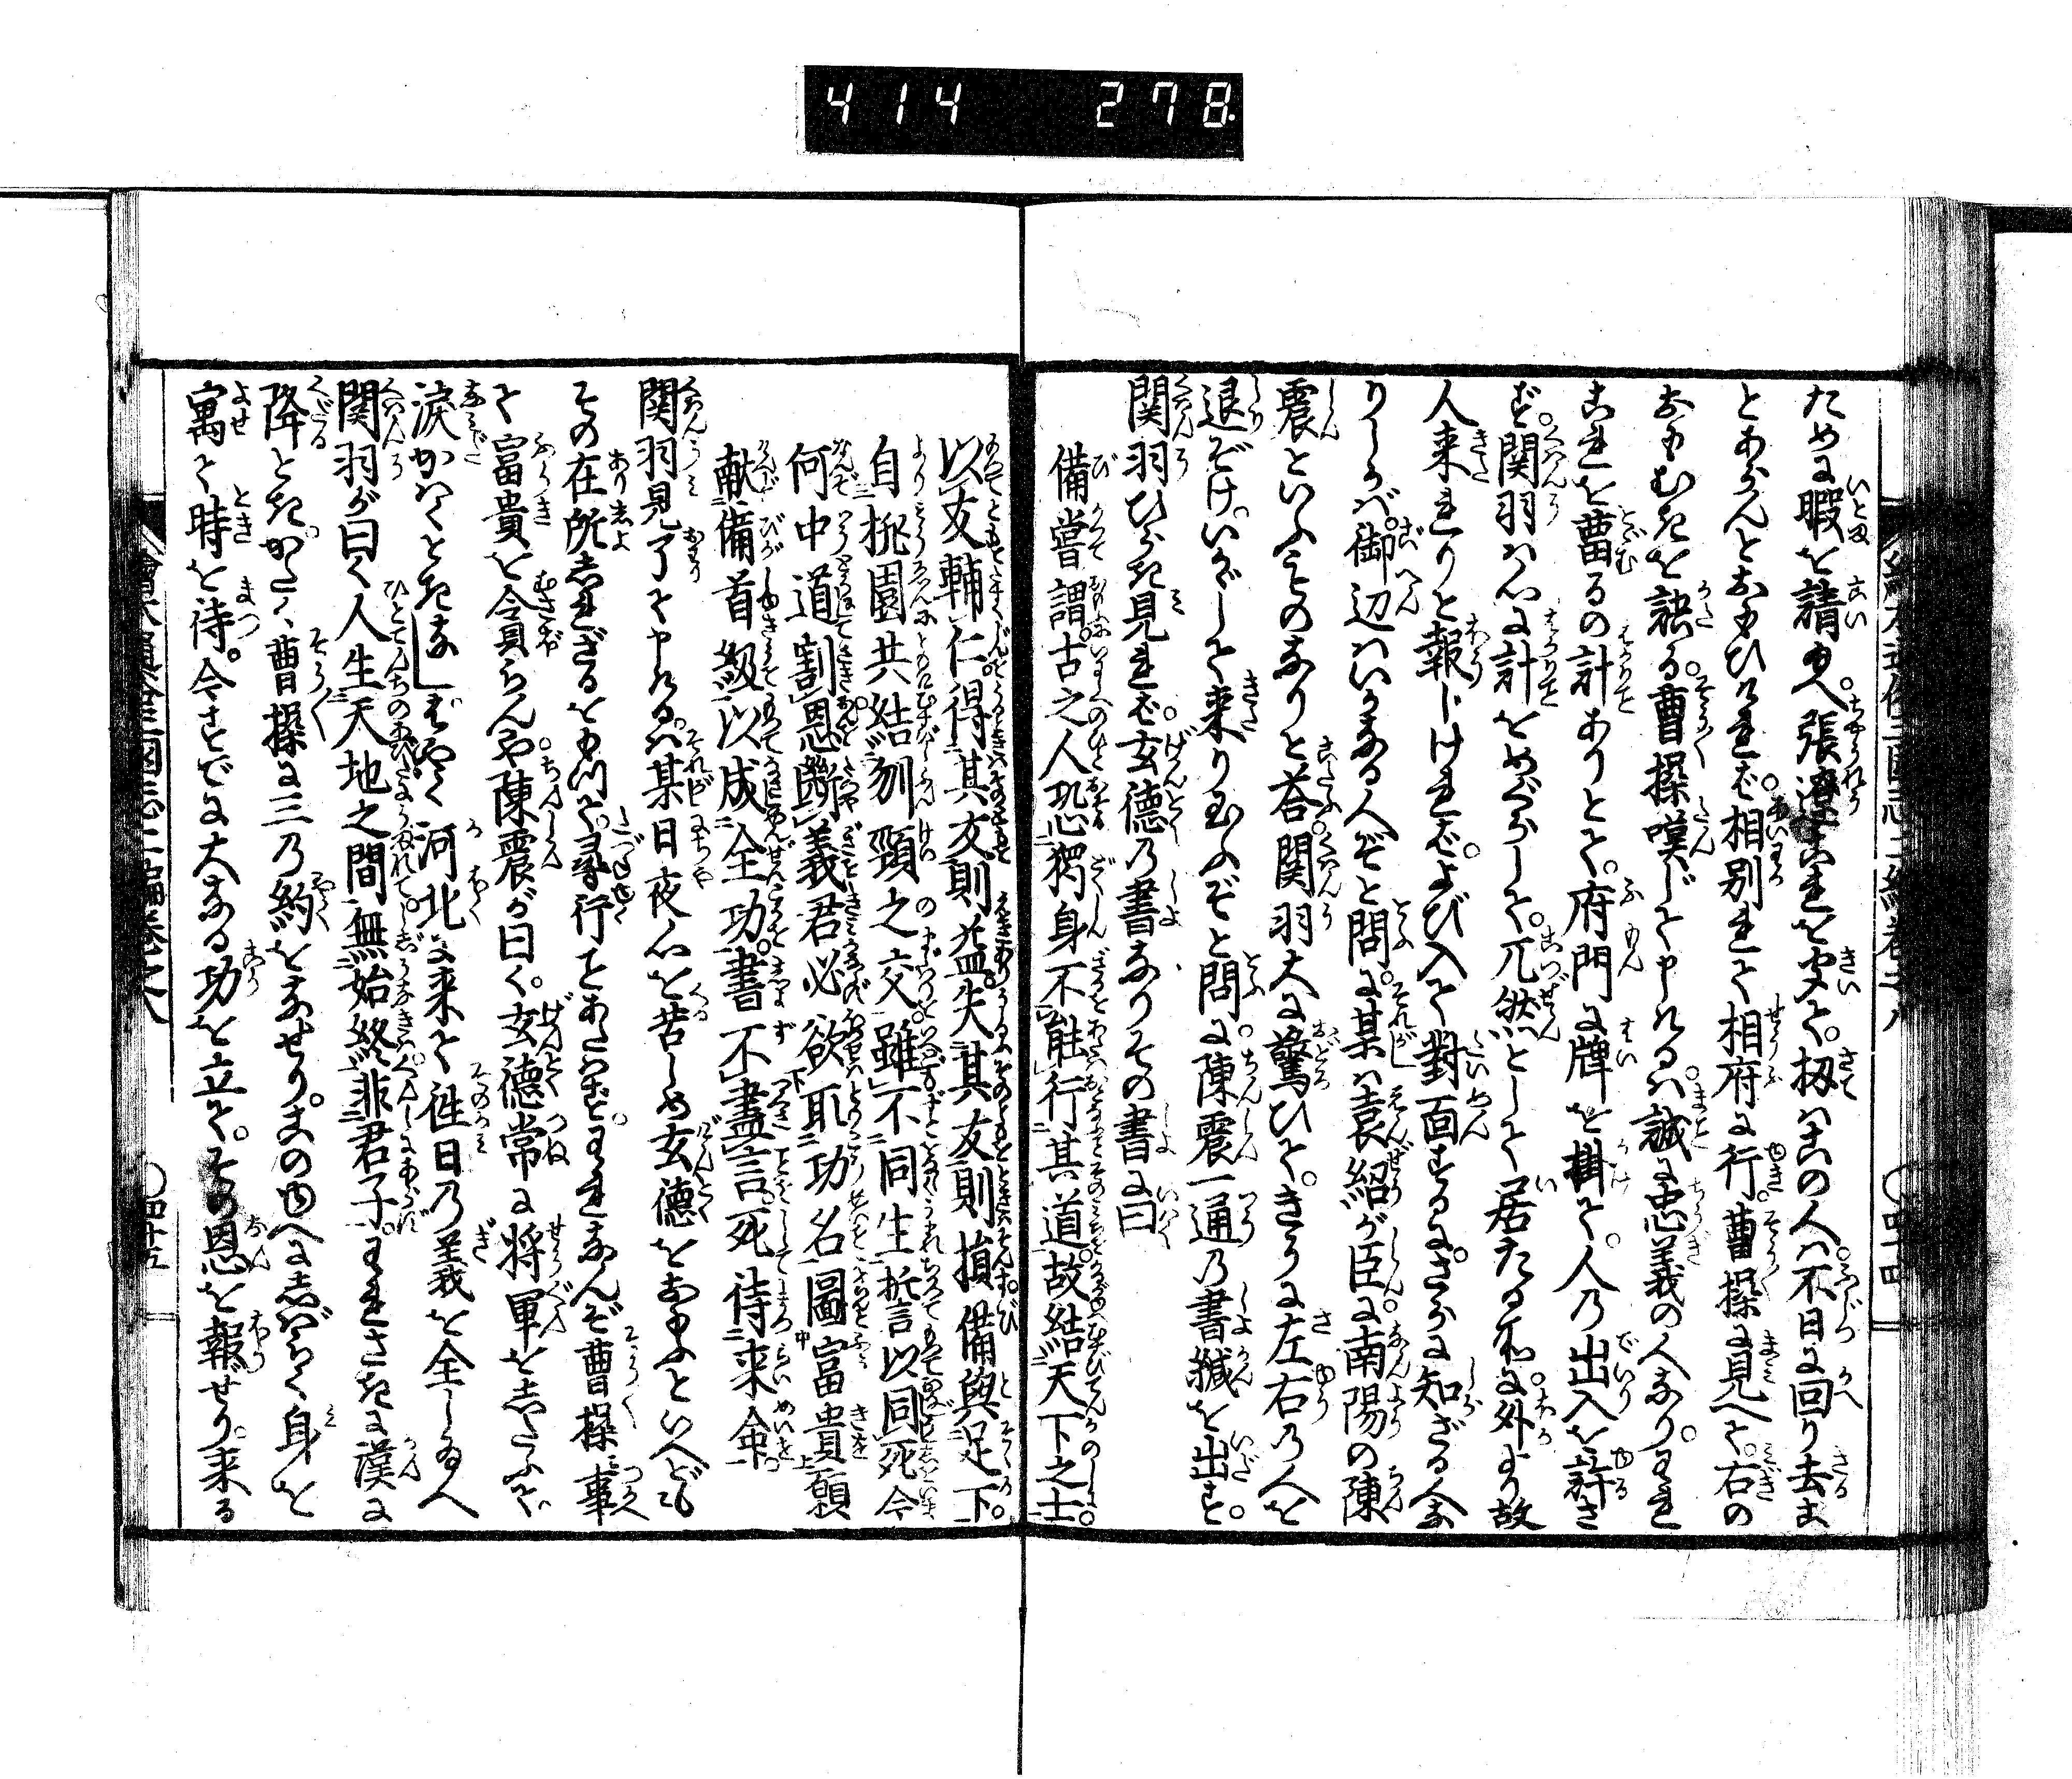 414 278
ために暇を請申へ張遼これを聞て扨はこの人は不日に回り去ま
とあらんとおもひければ相別れて相府に行曹操に見へて右の
おもむきを訴る曹操嘆じて申けるは誠に忠義の人なりわれ
これを留るの計ありとて府門に牌を掛て人の出入を許さ
ず関羽は心に計をめぐらして兀然として居たる所に外より故
人来れりと報じければよび入て對面するにさらに知ざる人な
りしかば御辺はいかなる人ぞと問に某は袁紹が臣に南陽の陳
震といふものなりと荅関羽大に驚ひてさらに左右の人を
退ぞけいかゞして来り玉ふぞと問に陳震一通の書緘を出す
関羽ひらき見れば玄徳の書なりその書に曰
備嘗謂古之人恐獨身不能行其道故結天下之士
以友輔仁得其友則益失其友則損備與足下
自桃園共結刎頸之交雖不同生誓以同死今
何中道割恩斷義君必欲取功名圖富貴願
献備首級以成全功書不盡言死待来命
関羽見了て申けるは某日夜心を苦しめ玄徳をおもふといへども
その在所しれざるをもつて尋行ことあたはずわれなんぞ曹操に事
て富貴を貪らんや陳震が曰く玄徳常に将軍をしたふて
涙かはくときなしはやく河北に来て徃日の義を全し玉へ
関羽が曰く人生天地之間無始終非君子われさきに漢に
降ときかたく曹操に三の約をなせりまのゆへにしばらく身を
寓て時を待今すでに大なる功を立てその恩を報ぜり来る